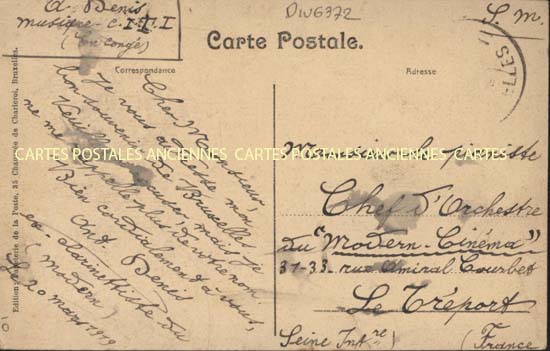 A. Denis
musique C.I.I.I
(en congé)
DIV6372
S. M.
Carte Postale.
Correspondance
Adresse
Cher Monsieur
Je vous adresse mon
bon souvenir de Bruxelles
Veuillez m'excuser, mais je
ne me rappelle plus de votre nom.
Bien cordialement à vous,
Ant Denis
ex-clarinettiste du
(Modern)
20 mars 1919
Monsieur le pianiste
Chef d'Orchestre
du "Modern-Cinéma"
31-33 rue Amiral Courbet
Le Tréport
Seine Infre
(France)
Edition: Papeterie de la Poste, 35 Chaussée de Charleroi, Bruxelles.
CARTES POSTALES ANCIENNES CARTES POSTALES ANCIENNES CARTES